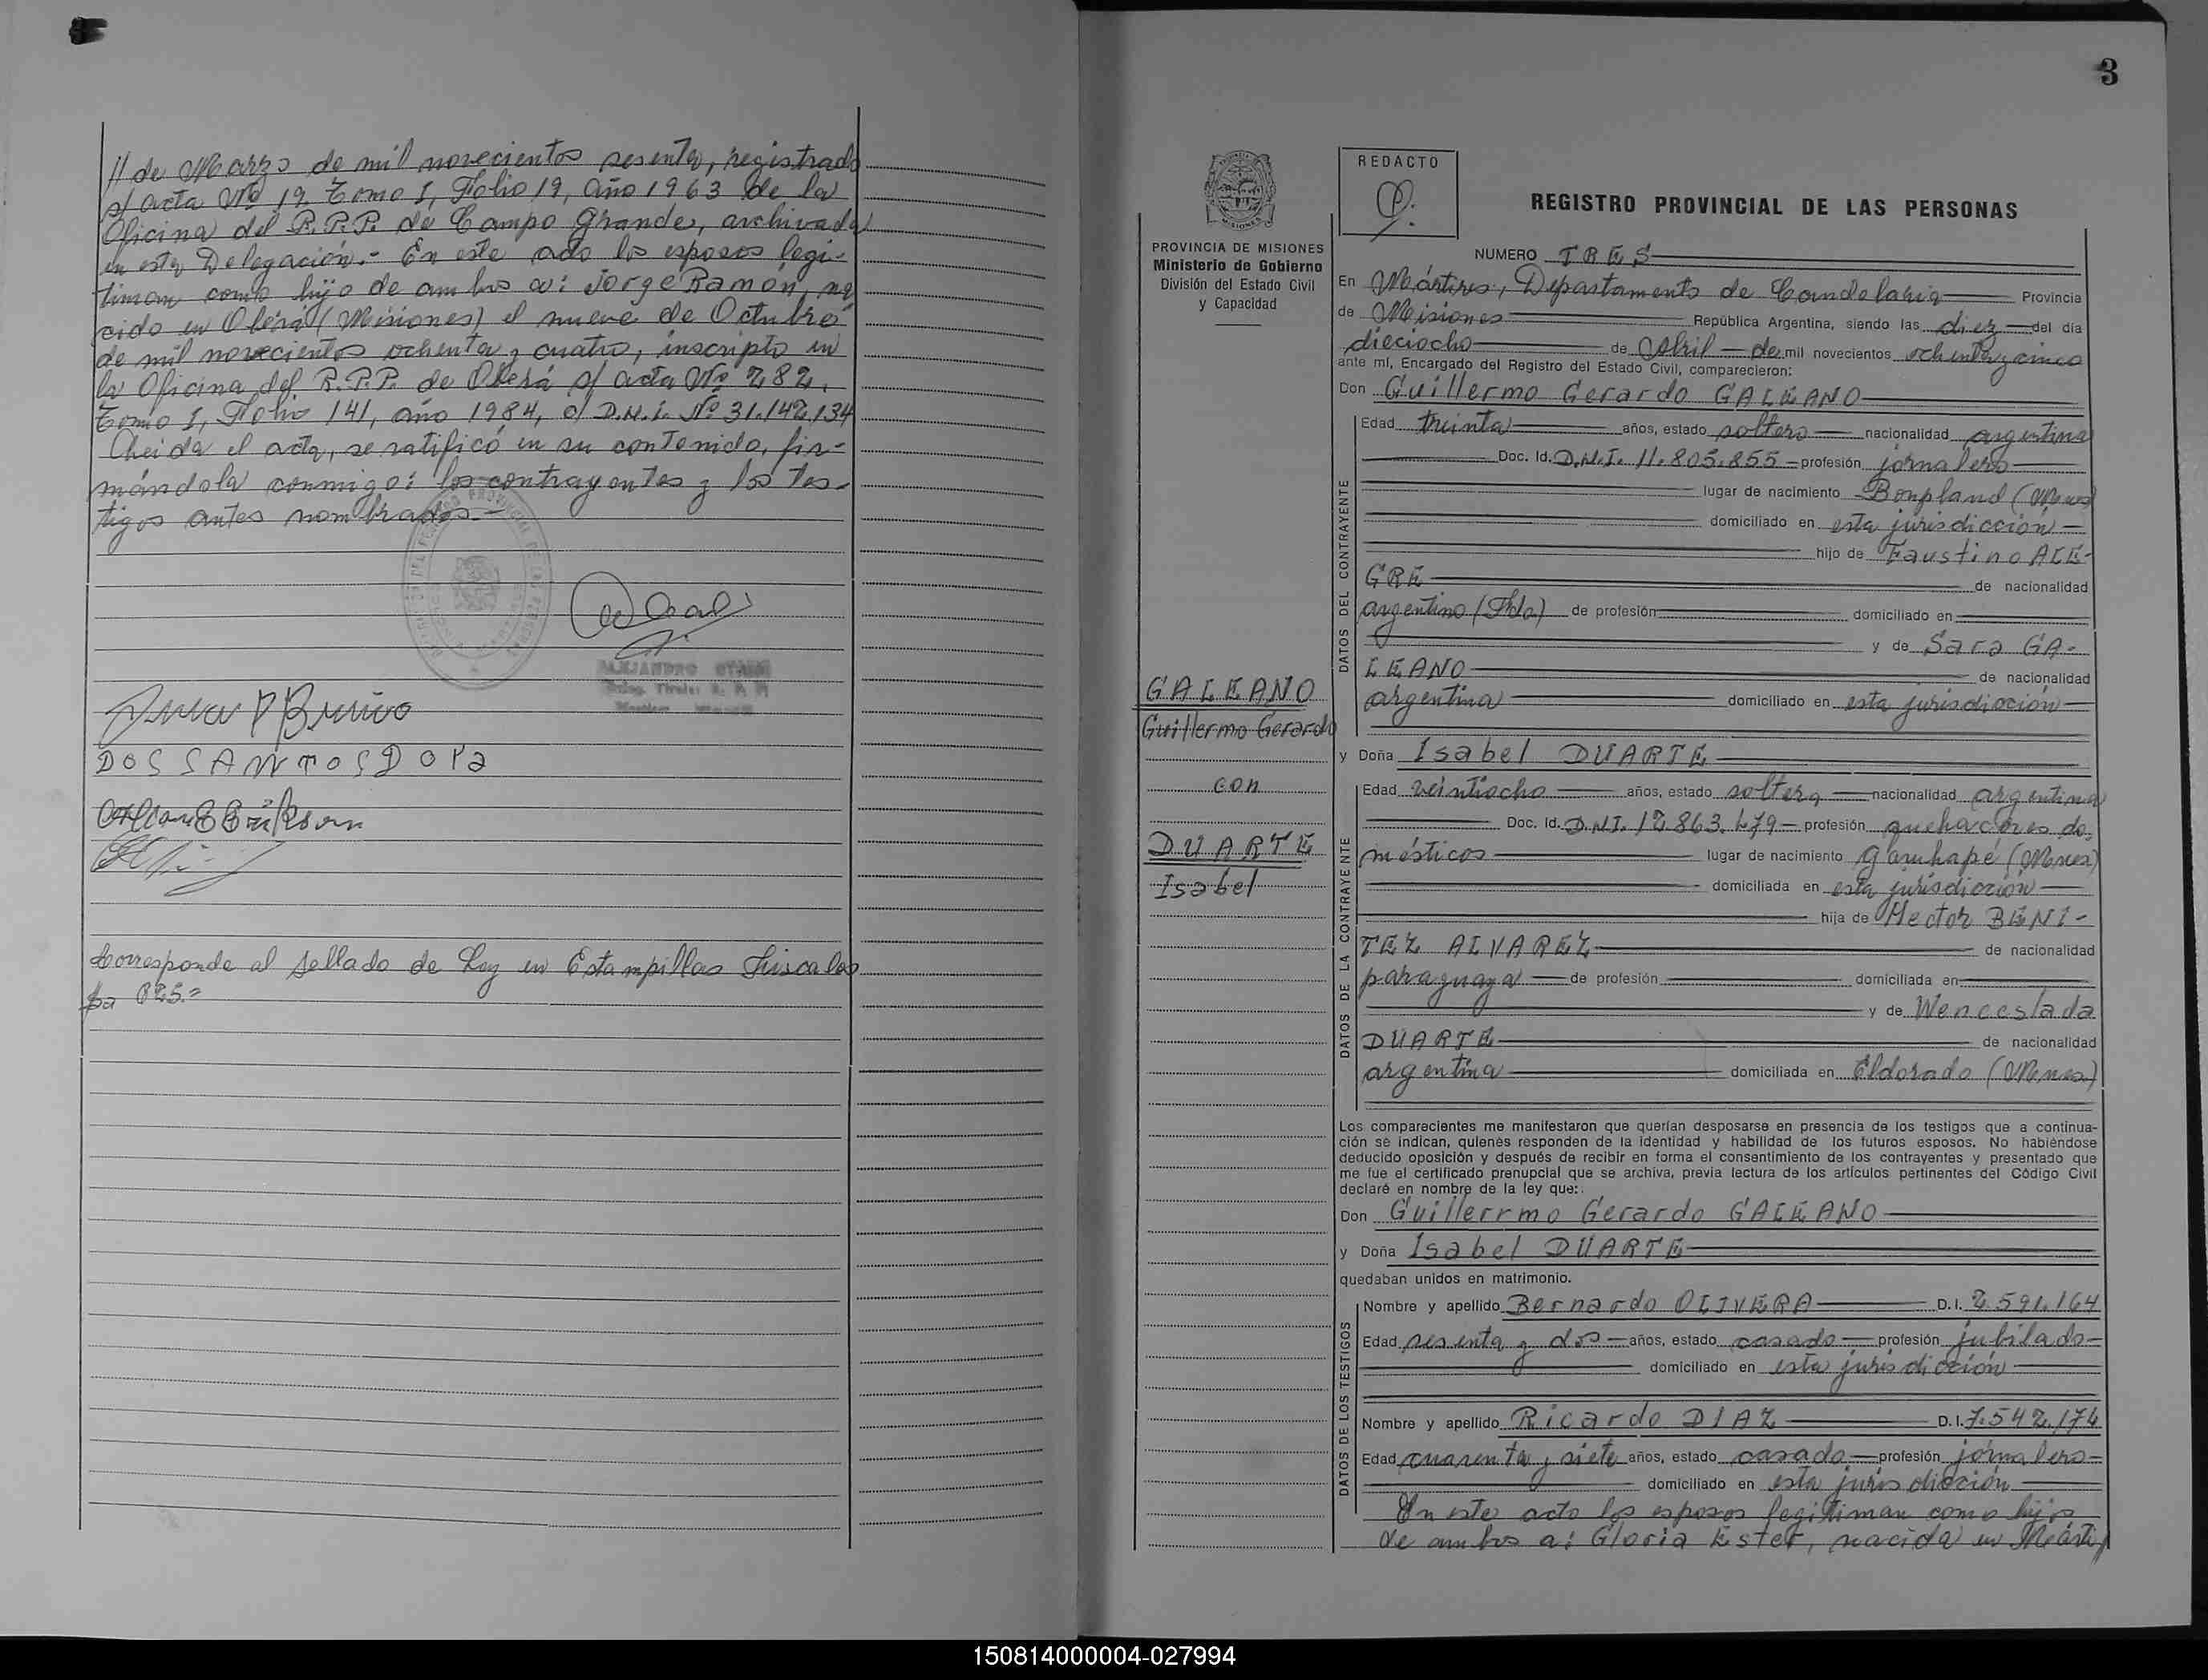 // de Marzo de mil novecientos sesenta, registrado
s/ acta Nº 19 Tomo I, Folio 19, año 1963 de la
Oficina del R.P.P. de Campo Grande, archivada
en esta Delegación.- En este acto los esposos legi-
timan como hijo de ambos a: Jorge Ramón, na
cido en Oberá (Misiones) el nueve de Octubre
de mil novecientos ochenta y cuatro, inscripto en
la Oficina del R.P.P. de Oberá s/ acta Nº 282,
Tomo I, Folio 141, año 1984, c/ D.N.I. Nº 31.142.134
Leida el acta, se ratificó en su contenido, fir-
mándola conmigo: los contrayentes y los tes-
tigos antes nombrados.-
ALEJANDRO
DOS SANTOS
Corresponde al sellado de Ley en Estampillas Fiscales
$a 625.=
3
REDACTO
REGISTRO PROVINCIAL DE LAS PERSONAS
PROVINCIA DE MISIONES
Ministerio de Gobierno
División del Estado Civil
y Capacidad
NUMERO TRES
En Mártires, Departamento de Candelaria Provincia
de Misiones República Argentina, siendo las diez del día
dieciocho de Abril de mil novecientos ochenta y cinco
ante mí, Encargado del Registro del Estado Civil, comparecieron:
Don Guillermo Gerardo GALEANO
DATOS DEL CONTRAYENTE
Edad treinta años, estado soltero nacionalidad argentina
Doc. Id. D.N.I. 11.805.855 profesión jornalero
lugar de nacimiento Bonpland (Mnes)
domiciliado en esta jurisdicción
hijo de Faustino ALE-
GRE de nacionalidad
argentino (Fdo) de profesión domiciliado en
y de Sara GA-
LEANO de nacionalidad
argentina domiciliado en esta jurisdicción
GALEANO
Guillermo Gerardo
con
DUARTE
Isabel
y Doña Isabel DUARTE
DATOS DE LA CONTRAYENTE
Edad veintiocho años, estado soltera nacionalidad argentina
Doc. Id. D.N.I. 12.863.479 profesión quehaceres do-
mésticos lugar de nacimiento Garuhapé (Mnes)
domiciliada en esta jurisdicción
hija de Hector BENI-
TEZ ALVAREZ de nacionalidad
paraguaya de profesión domiciliada en
y de Wenceslada
DUARTE de nacionalidad
argentina domiciliada en Eldorado (Mnes)
Los comparecientes me manifestaron que querían desposarse en presencia de los testigos que a continua-
ción se indican, quienes responden de la identidad y habilidad de los futuros esposos. No habiéndose
deducido oposición y después de recibir en forma el consentimiento de los contrayentes y presentado que
me fue el certificado prenupcial que se archiva, previa lectura de los artículos pertinentes del Código Civil
declaré en nombre de la ley que:
Don Guillerrmo Gerardo GALEANO
y Doña Isabel DUARTE
quedaban unidos en matrimonio.
DATOS DE LOS TESTIGOS
Nombre y apellido Bernardo OLIVERA D.I. 2.591.164
Edad sesenta y dos años, estado casado profesión jubilado
domiciliado en esta jurisdicción
Nombre y apellido Ricardo DIAZ D.I. 7.542.174
Edad cuarenta y siete años, estado casado profesión jornalero
domiciliado en esta jurisdicción
En este acto los esposos legitiman como hijos
de ambos a: Gloria Ester, nacida en Márti/
150814000004-027994